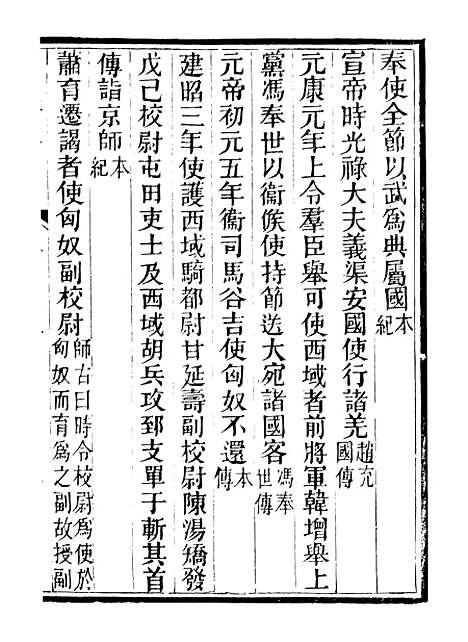 奉使全節以武爲典屬國本紀
宣帝時光祿大夫義渠安國使行諸羌趙充國傳
元康元年上令羣臣舉可使西域者前將軍韓增舉上
黨馮奉世以衞候使持節送大宛諸國客馮奉世傳
元帝初元五年衞司馬谷吉使匈奴不還本傳
建昭三年使護西域騎都尉甘延壽副校尉陳湯矯發
戊己校尉屯田吏士及西域胡兵攻郅支單于斬其首
傳詣京師本紀
蕭育遷謁者使匈奴副校尉師古曰時令校尉爲使於匈奴而育爲之副故授副